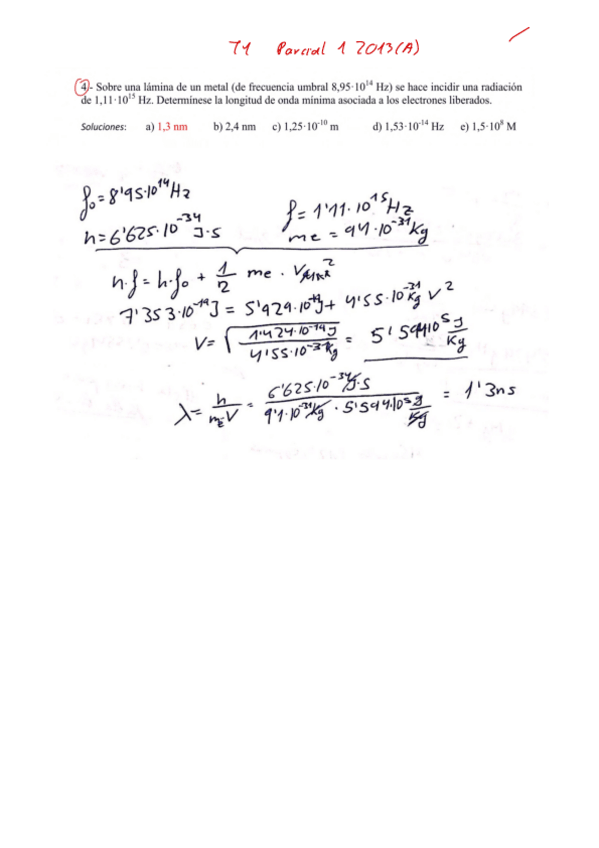 T1 Parcial 1 2013(A)
4.- Sobre una lámina de un metal (de frecuencia umbral 8,95·10¹⁴ Hz) se hace incidir una radiación
de 1,11·10¹⁵ Hz. Determínese la longitud de onda mínima asociada a los electrones liberados.
Soluciones: a) 1,3 nm b) 2,4 nm c) 1,25·10⁻¹⁰ m d) 1,53·10⁻¹⁴ Hz e) 1,5·10⁸ M
f₀ = 8'95·10¹⁴ Hz
f = 1'11·10¹⁵ Hz
h = 6'625·10⁻³⁴ J·s
me = 9'1·10⁻³¹ Kg
h·f = h·f₀ + 1/2 me · V²
7'353·10⁻¹⁹ J = 5'929·10⁻¹⁹ J + 4'55·10⁻³¹ Kg V²
V = √(1'424·10⁻¹⁹ J / 4'55·10⁻³¹ Kg) = 5'594·10⁵ J/Kg
λ = h/(me·V) = 6'625·10⁻³⁴ J·s / (9'1·10⁻³¹ Kg · 5'594·10⁵ J/Kg) = 1'3ns